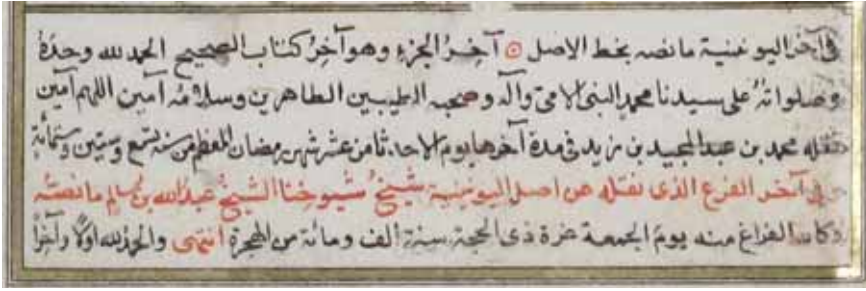 في آخر اليونينية ما نصه بخط الاصل ۞ آخِرُ الجزءِ وهو آخِرُ كتاب الصحيح الحمد لله وحدَهُ
وصلواتُهُ على سيدنا محمدٍ النبي الامي وآله وصحبه الطيبين الطاهرين وسلامُه آمين اللهم آمين
نقله محمد بن عبد المجيد بن زيد في مدة آخرها يوم الاحد ثامن عشر شهر رمضان المعظم من سنه تسع وستين وستمائة
في آخر الفرع الذى نقله من اصل اليونينية شيخُ شيوخنا الشيخُ عبدُ الله بن سالم ما نصتُه
وكان الفراغ منه يومَ الجمعة غرة ذى الحجة سنة الف ومائة من الهجرة انتهى والحمد لله اولًا وآخرًا